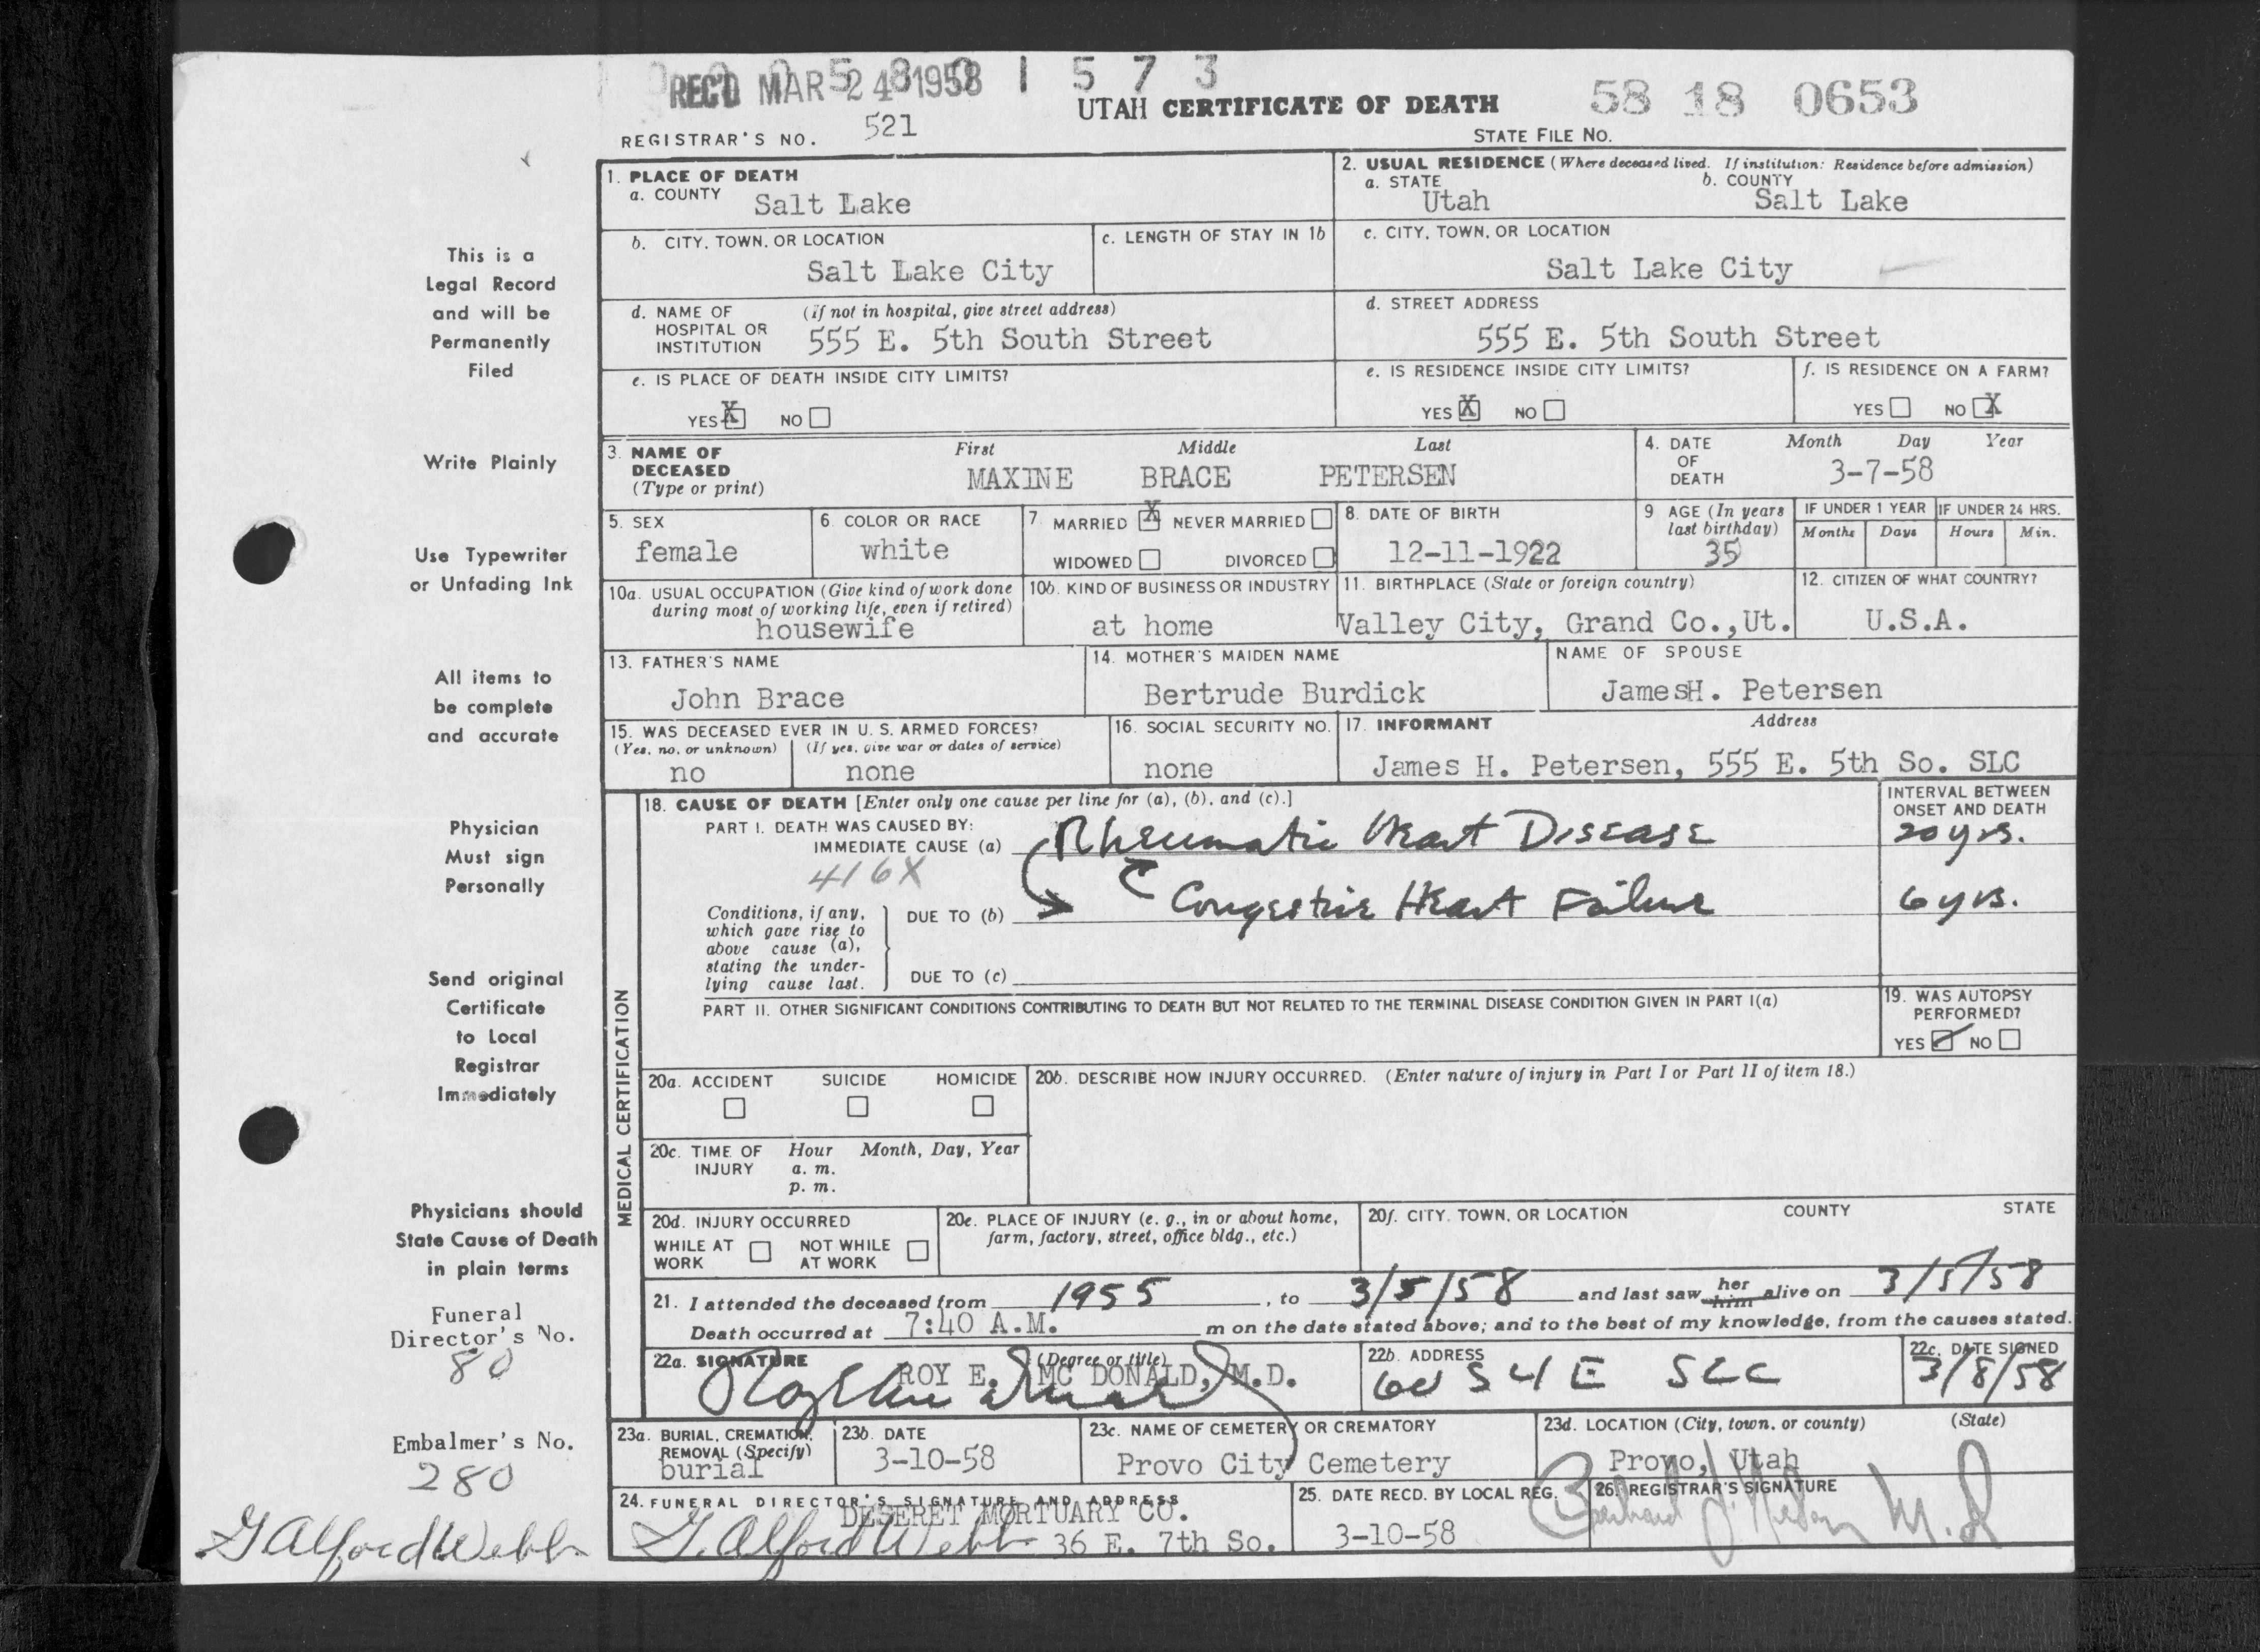 REC'D MAR 24 1958 1 5 7 3
UTAH CERTIFICATE OF DEATH
58 18 0653
REGISTRAR'S NO. 521
STATE FILE NO.
1. PLACE OF DEATH
a. COUNTY Salt Lake
2. USUAL RESIDENCE (Where deceased lived. If institution: Residence before admission)
a. STATE Utah b. COUNTY Salt Lake
b. CITY, TOWN, OR LOCATION Salt Lake City
c. LENGTH OF STAY IN 1b
c. CITY, TOWN, OR LOCATION Salt Lake City
d. NAME OF HOSPITAL OR INSTITUTION (If not in hospital, give street address) 555 E. 5th South Street
d. STREET ADDRESS 555 E. 5th South Street
e. IS PLACE OF DEATH INSIDE CITY LIMITS?
YES X NO
e. IS RESIDENCE INSIDE CITY LIMITS?
YES X NO
f. IS RESIDENCE ON A FARM?
YES NO X
3. NAME OF DECEASED (Type or print)
First Middle Last
MAXINE BRACE PETERSEN
4. DATE OF DEATH Month Day Year
3-7-58
5. SEX female
6. COLOR OR RACE white
7. MARRIED X NEVER MARRIED
WIDOWED DIVORCED
8. DATE OF BIRTH 12-11-1922
9 AGE (In years last birthday) 35
IF UNDER 1 YEAR Months Days
IF UNDER 24 HRS. Hours Min.
10a. USUAL OCCUPATION (Give kind of work done during most of working life, even if retired) housewife
10b. KIND OF BUSINESS OR INDUSTRY at home
11. BIRTHPLACE (State or foreign country) Valley City, Grand Co.,Ut.
12. CITIZEN OF WHAT COUNTRY? U.S.A.
13. FATHER'S NAME John Brace
14. MOTHER'S MAIDEN NAME Bertrude Burdick
NAME OF SPOUSE JamesH. Petersen
15. WAS DECEASED EVER IN U. S. ARMED FORCES?
(Yes, no, or unknown) no
(If yes, give war or dates of service) none
16. SOCIAL SECURITY NO. none
17. INFORMANT Address
James H. Petersen, 555 E. 5th So. SLC
MEDICAL CERTIFICATION
18. CAUSE OF DEATH [Enter only one cause per line for (a), (b), and (c).]
INTERVAL BETWEEN ONSET AND DEATH
PART I. DEATH WAS CAUSED BY:
IMMEDIATE CAUSE (a) Rheumatic Heart Disease 20 yrs.
416X
Conditions, if any, which gave rise to above cause (a), stating the underlying cause last.
DUE TO (b) Congestive Heart Failure 6 yrs.
DUE TO (c)
PART II. OTHER SIGNIFICANT CONDITIONS CONTRIBUTING TO DEATH BUT NOT RELATED TO THE TERMINAL DISEASE CONDITION GIVEN IN PART I(a)
19. WAS AUTOPSY PERFORMED?
YES NO
20a. ACCIDENT SUICIDE HOMICIDE
20b. DESCRIBE HOW INJURY OCCURRED. (Enter nature of injury in Part I or Part II of item 18.)
20c. TIME OF INJURY Hour a. m. p. m. Month, Day, Year
20d. INJURY OCCURRED
WHILE AT WORK NOT WHILE AT WORK
20e. PLACE OF INJURY (e. g., in or about home, farm, factory, street, office bldg., etc.)
20f. CITY, TOWN, OR LOCATION COUNTY STATE
21. I attended the deceased from 1955, to 3/5/58 and last saw her him alive on 3/5/58
Death occurred at 7:40 A.M. m on the date stated above; and to the best of my knowledge, from the causes stated.
22a. SIGNATURE (Degree or title)
ROY E. MC DONALD, M.D.
22b. ADDRESS S 4 E SLC
22c. DATE SIGNED 3/8/58
23a. BURIAL, CREMATION, REMOVAL (Specify) burial
23b. DATE 3-10-58
23c. NAME OF CEMETERY OR CREMATORY Provo City Cemetery
23d. LOCATION (City, town, or county) (State)
Provo, Utah
24. FUNERAL DIRECTOR'S SIGNATURE AND ADDRESS
DESERET MORTUARY CO.
G. Alford Webb 36 E. 7th So.
25. DATE RECD. BY LOCAL REG. 3-10-58
26. REGISTRAR'S SIGNATURE
M.D
This is a
Legal Record
and will be
Permanently
Filed
Write Plainly
Use Typewriter
or Unfading Ink
All items to
be complete
and accurate
Physician
Must sign
Personally
Send original
Certificate
to Local
Registrar
Immediately
Physicians should
State Cause of Death
in plain terms
Funeral
Director's No.
80
Embalmer's No.
280
G Alford Webb